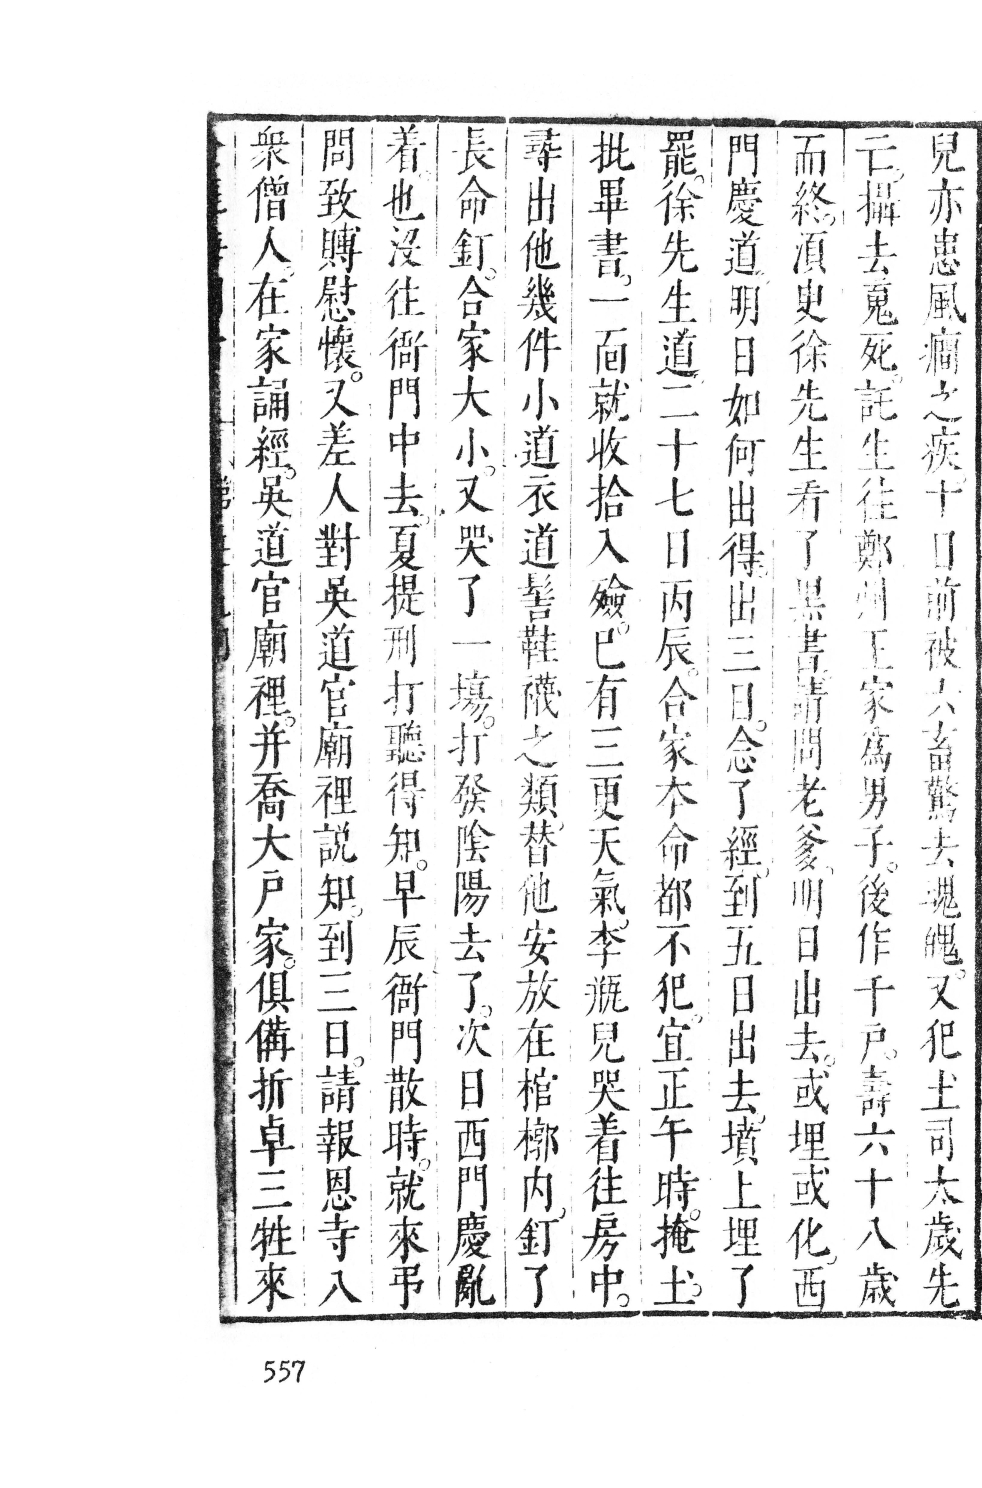 兒亦患風癇之疾。十日前被六畜驚去魂魄。又犯土司太歲先
亡。攝去䰟死。託生往鄭州王家爲男子。後作千戶。壽六十八歲
而終。湏史徐先生看了黑書。請問老爹。明日出去。或埋或化。西
門慶道。明日如何出得。出三日。念了經。到五日出去。墳上埋了
罷。徐先生道。二十七日丙辰。合家夲命都不犯。宜正午時。掩土。
批畢書。一面就收拾入殮。巳有三更天氣。李瓶兒哭着往房中。
尋出他幾件小道衣道髻鞋襪之類。替他安放在棺槨内。釘了
長命釘。合家大小。又哭了一塲。打發陰陽去了。次日西門慶亂
着。也沒往衙門中去。夏提刑打聽得知。早辰衙門散時。就來弔
問致賻慰懷。又差人對吳道官廟裡説知。到三日。請報恩寺八
衆僧人。在家誦經。吳道官廟裡。并喬大戶家。俱備折卓三牲來
557